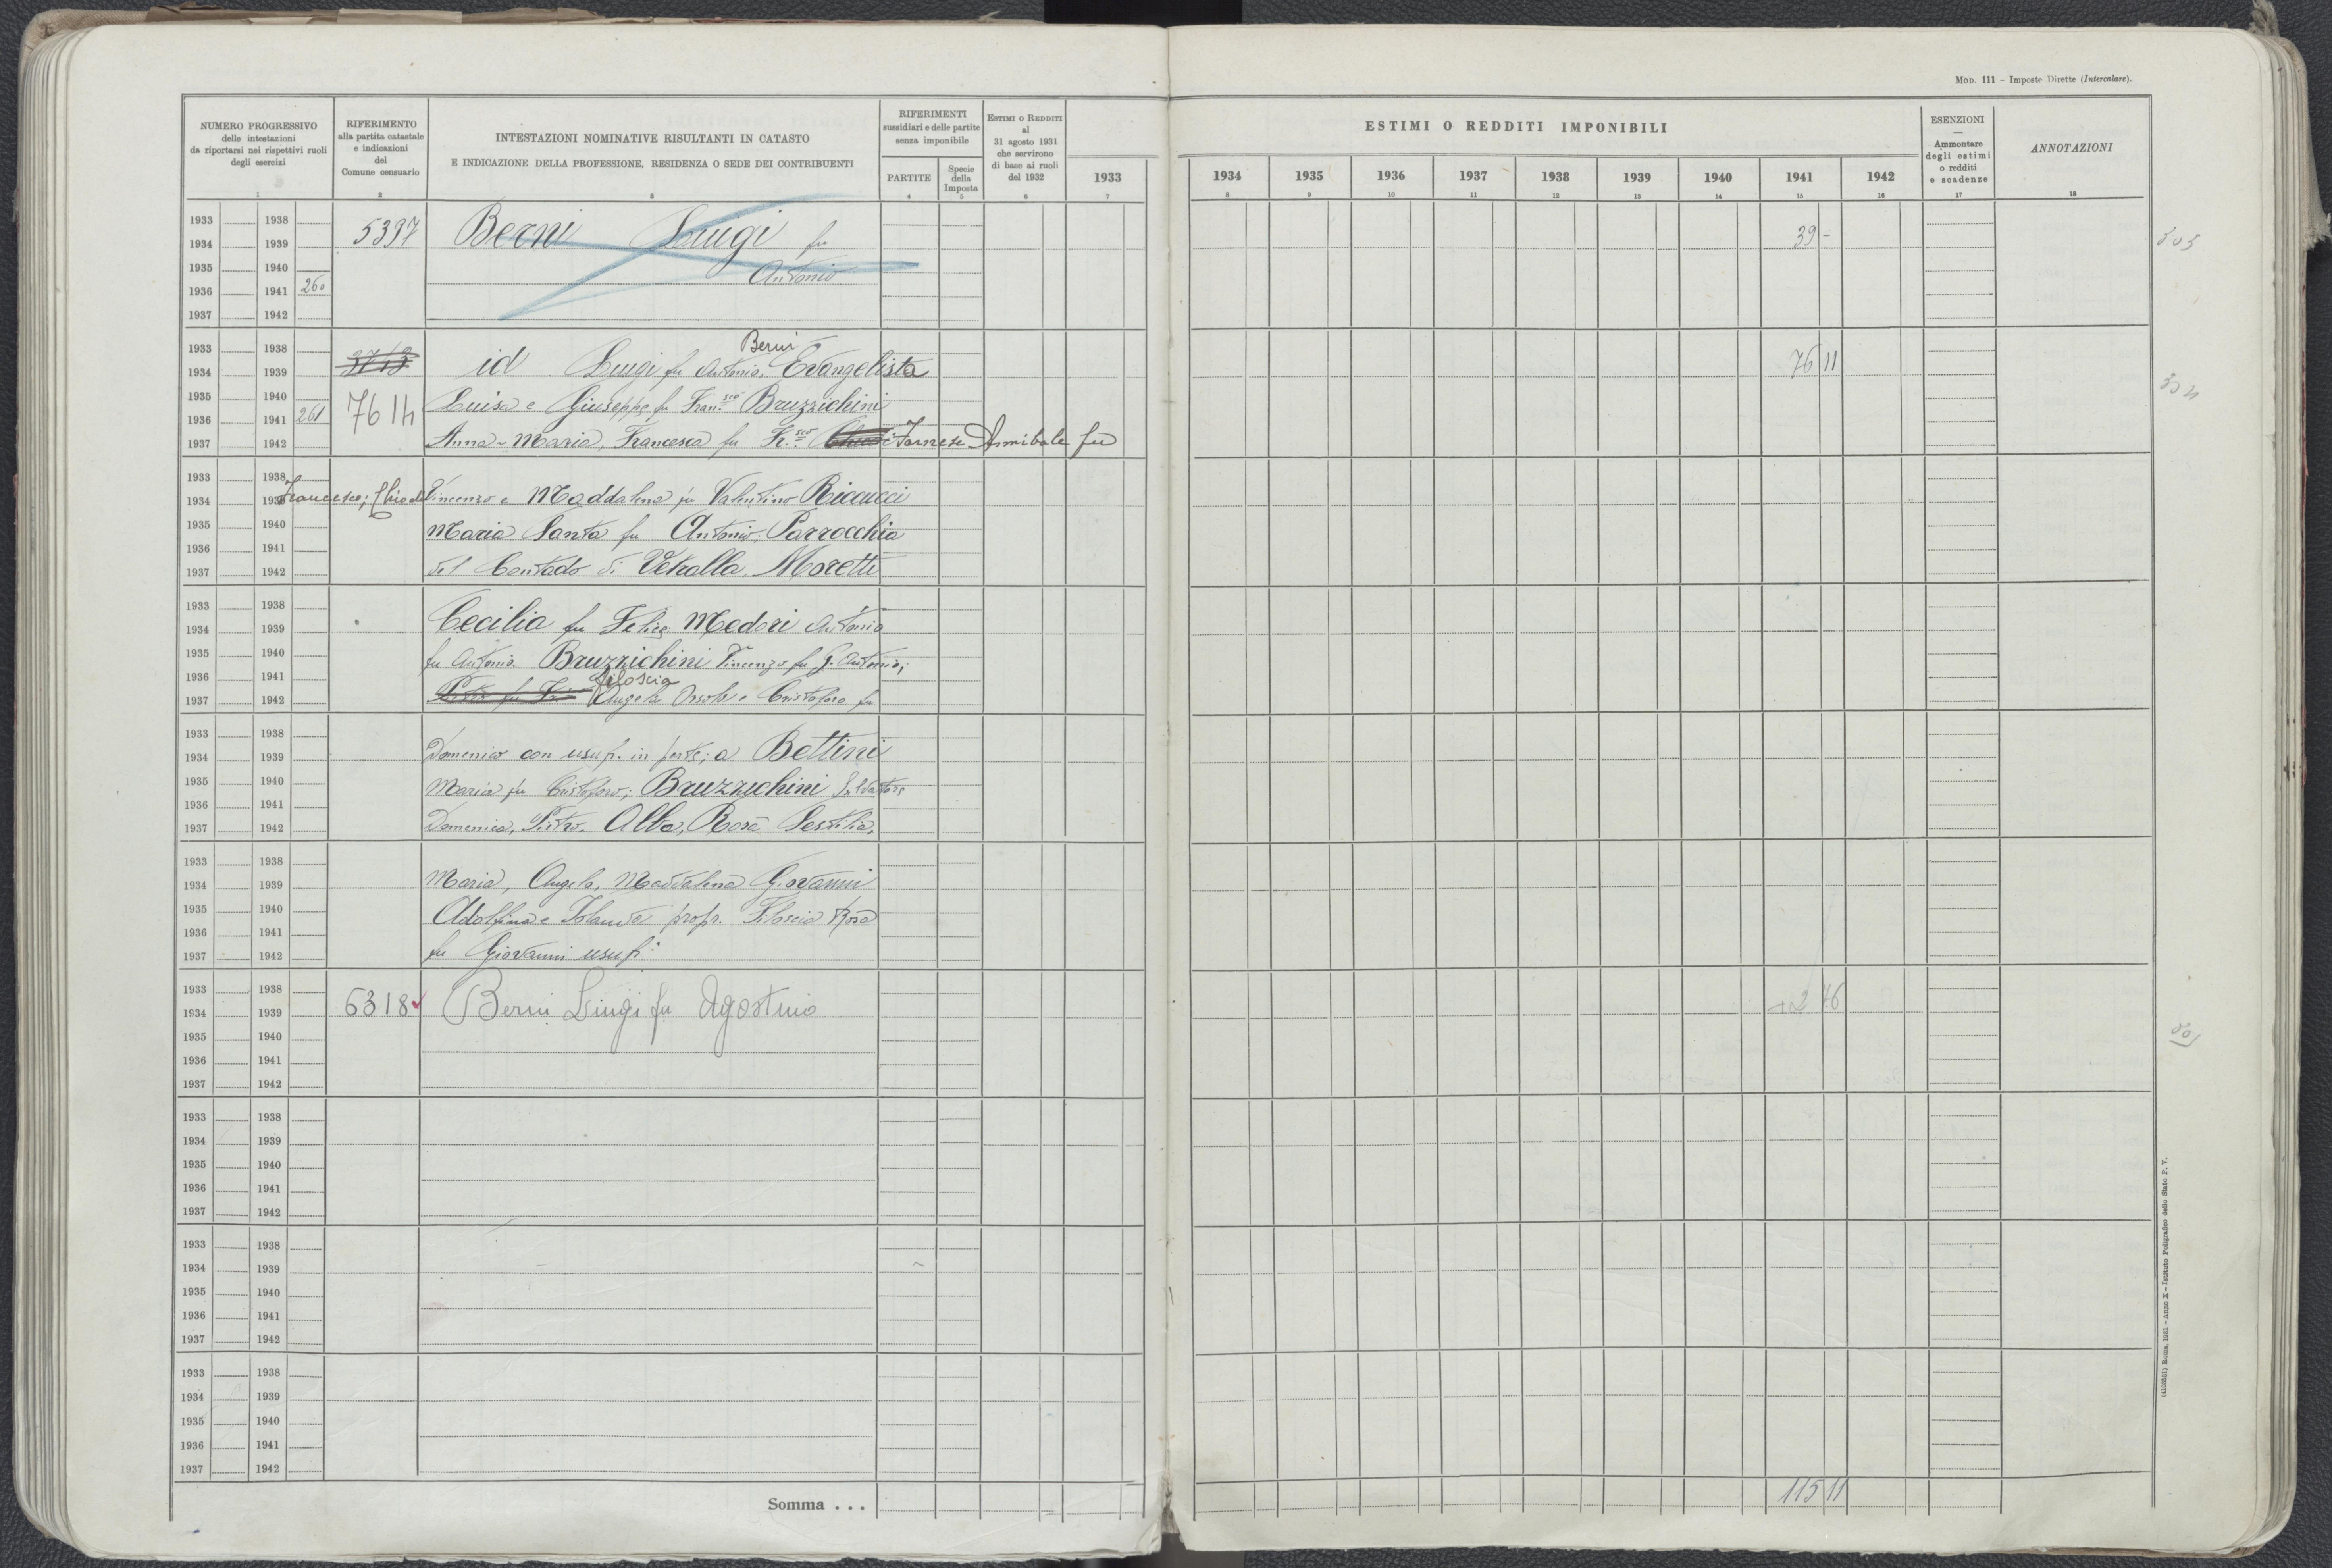 Mod. 111 – Imposte Dirette (Intercalare).
NUMERO PROGRESSIVO
delle intestazioni
da riportarsi nei rispettivi ruoli
degli esercizi
RIFERIMENTO
alla partita catastale
e indicazioni
del
Comune censuario
INTESTAZIONI NOMINATIVE RISULTANTI IN CATASTO
E INDICAZIONE DELLA PROFESSIONE, RESIDENZA O SEDE DEI CONTRIBUENTI
RIFERIMENTI
sussidiari e delle partite
senza imponibile
PARTITE
Specie
della
Imposta
Estimi o Redditi
al
31 agosto 1931
che servirono
di base ai ruoli
del 1932
ESTIMI O REDDITI IMPONIBILI
1933 1934 1935 1936 1937 1938 1939 1940 1941 1942
ESENZIONI
—
Ammontare
degli estimi
o redditi
e scadenze
ANNOTAZIONI
1 2 3 4 5 6 7 8 9 10 11 12 13 14 15 16 17 18
1933 1938 5397 Berni Luigi fu 39 -
1934 1939
Antonio
1935 1940
1936 1941 260
1937 1942
Berni
1933 1938 3713 id Luigi fu Antonio, Evangelista 76 11
1934 1939
1935 1940 7614 Luisa e Giuseppe fu Fran.sco Bruzzichini
1936 1941 261
1937 1942 Anna-Maria, Francesca fu Fr.sco Farnese Annibale fu
1933 1938
1934 1939 Francesco; Chiodi Vincenzo e Maddalena fu Valentino Riccucci
1935 1940 Maria Santa fu Antonio, Parrocchia
1936 1941
1937 1942 del Contado di Vetralla, Moretti
1933 1938 Cecilia fu Felice Medori Antonio
1934 1939
1935 1940 fu Antonio. Bruzzichini Vincenzo fu G. Antonio;
1936 1941 Filoscia
1937 1942 Angela Orsola e Cristoforo fu
1933 1938
1934 1939 Domenico con usufr. in parte; a Bettini
1935 1940 Maria fu Cristoforo; Bruzzichini Salvatore
1936 1941
1937 1942 Domenica, Pietro, Alba, Rosa Sestilia,
1933 1938
1934 1939 Maria, Angela, Maddalena Giovanni
1935 1940 Adolfina e Iolanda propr. Filoscia Rosa
1936 1941
1937 1942 fu Giovanni usufr:
1933 1938 6318 Berni Luigi fu Agostino 2 76
1934 1939
1935 1940
1936 1941
1937 1942
1933 1938
1934 1939
1935 1940
1936 1941
1937 1942
1933 1938
1934 1939
1935 1940
1936 1941
1937 1942
1933 1938
1934 1939
1935 1940
1936 1941
1937 1942
Somma . . . 115 11
Roma, 1931 – Anno X – Istituto Poligrafico dello Stato P. V.